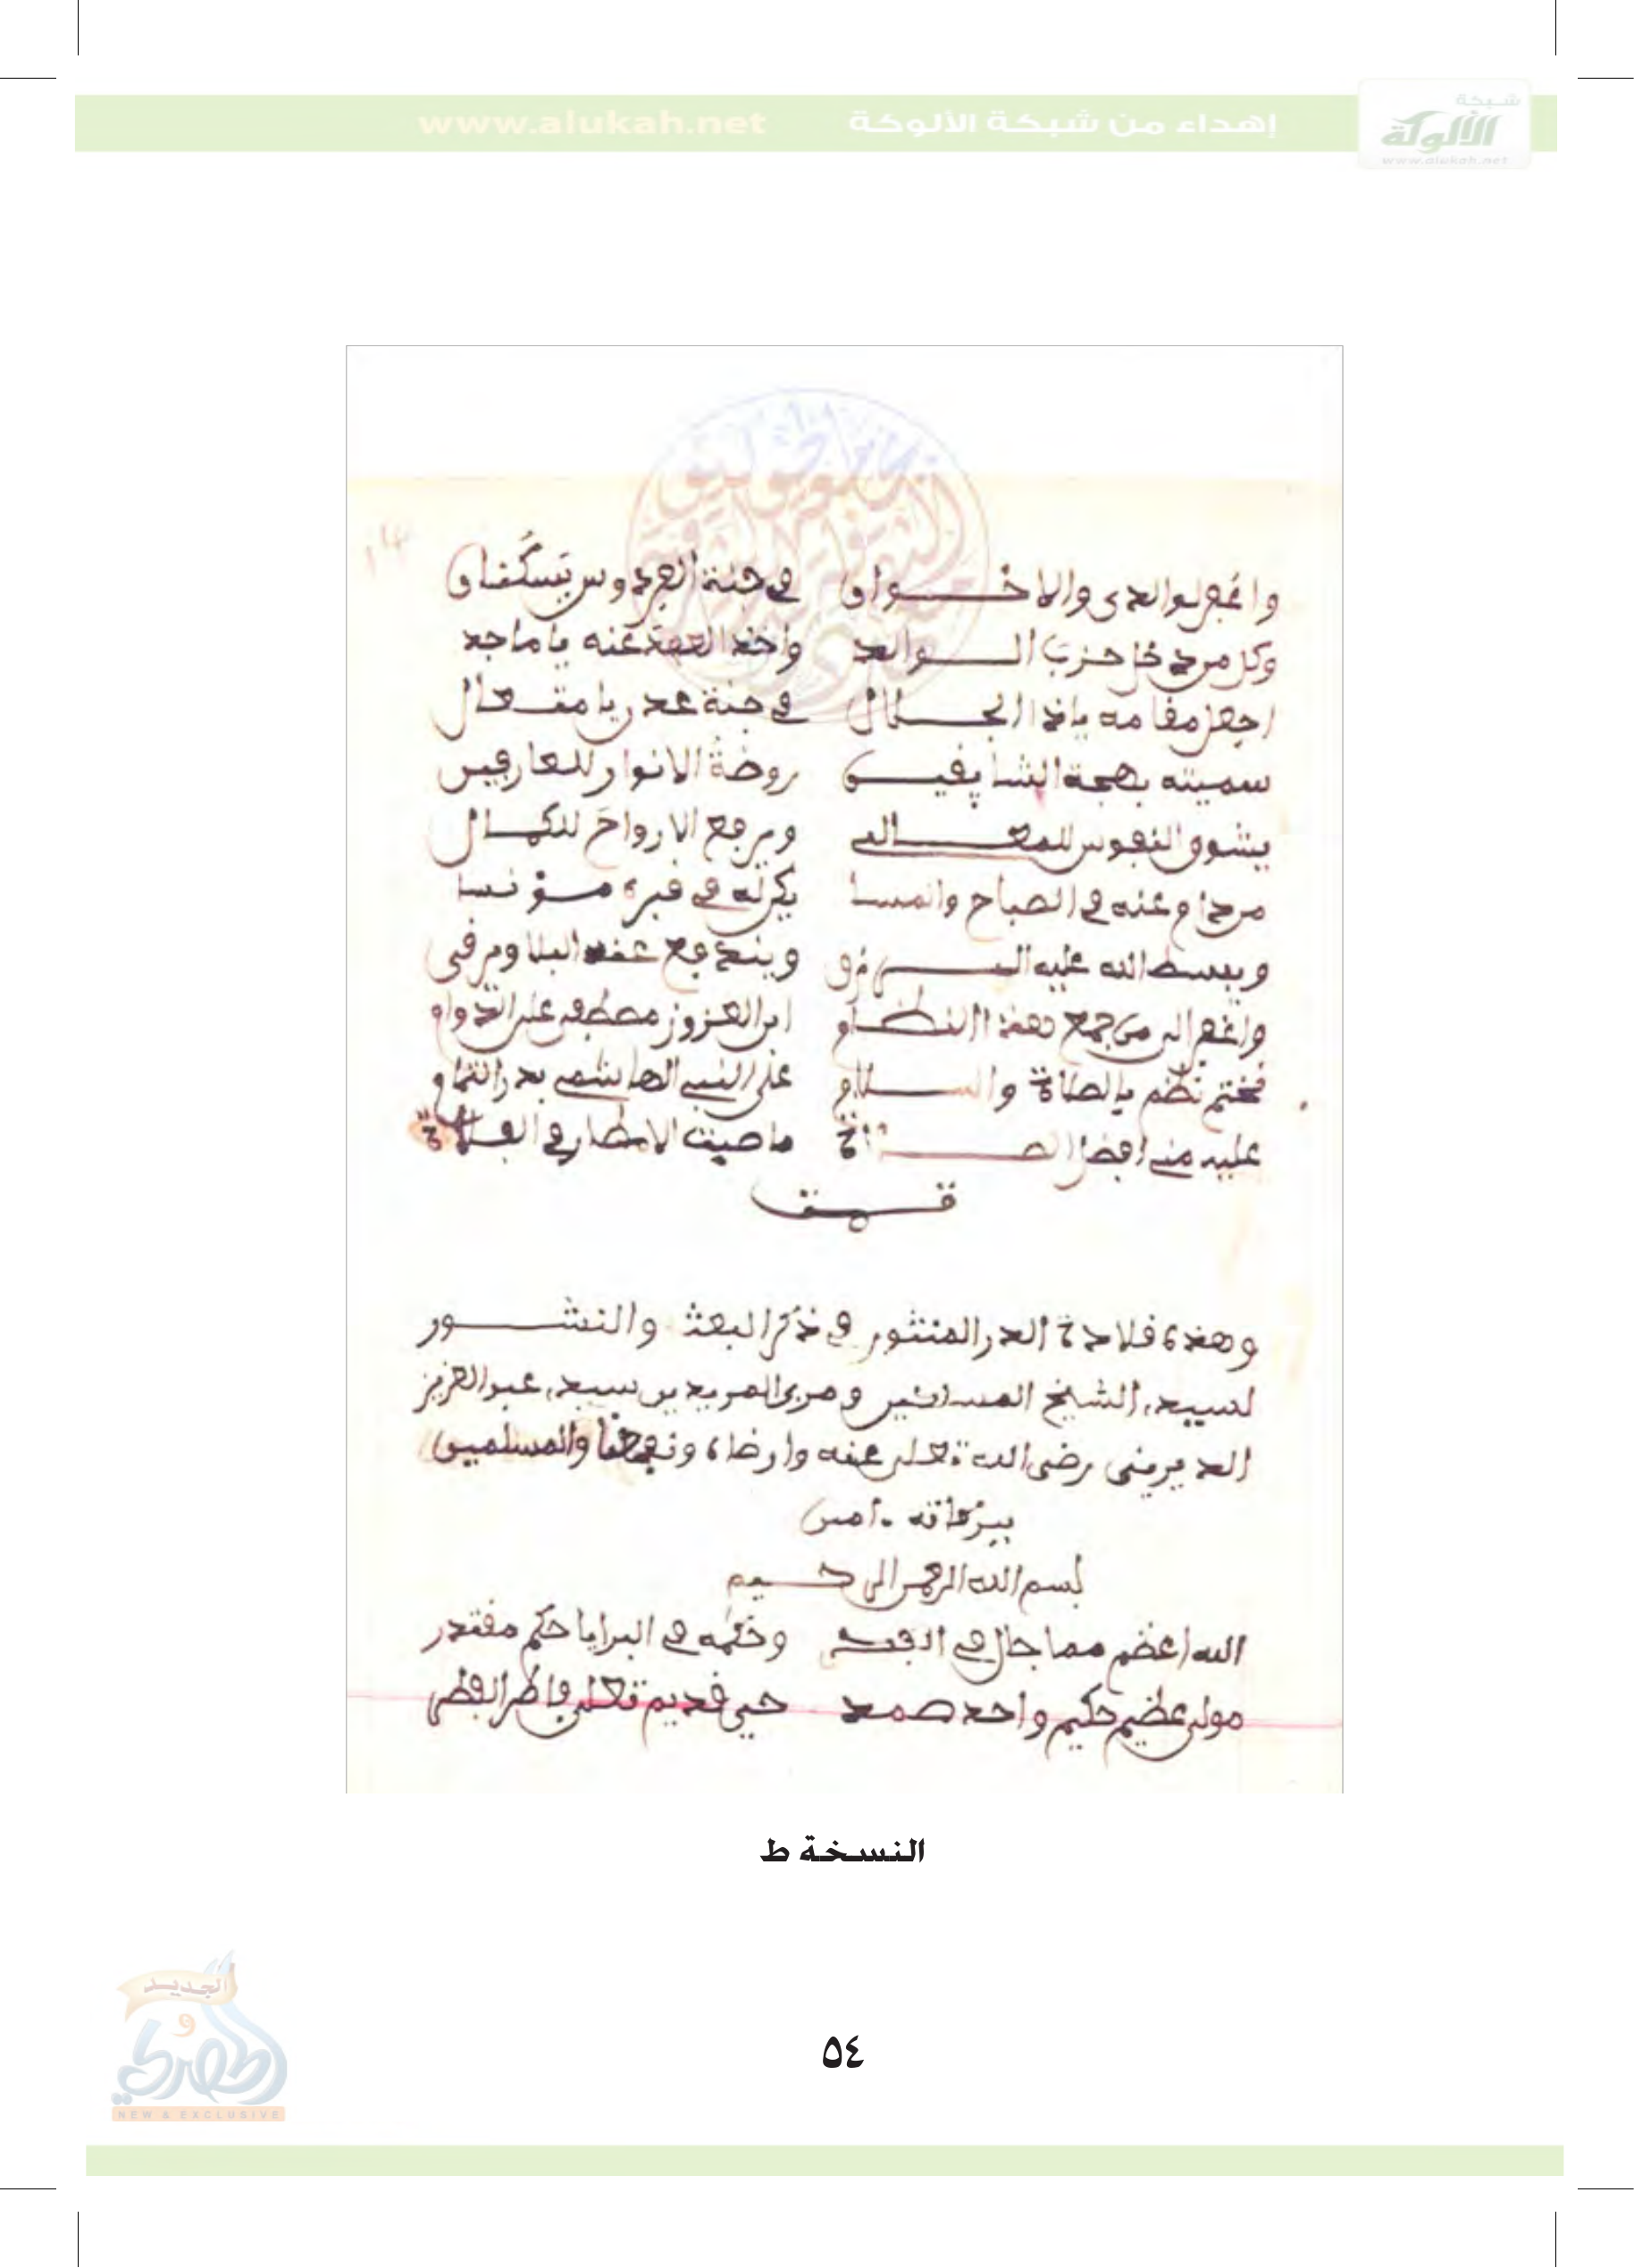 شبكة
الألوكة
www.alukah.net
إهداء من شبكة الألوكة www.alukah.net
واغفر لوالدي والاخـــوان في جنة الفردوس يسكنان
وكل من دخل حزب الـــوالد واخذ العهد عنه يا ماجد
اجعل مقامه ياذا الجـــلال في جنة عدن يا متعـــال
سميته بهجة الشايقيـــن روضة الانوار للعارفين
يشوق النفوس للمعـــالي ويرفع الارواح للكمـــال
من داوم عنه في الصباح والمسا يكن له في قبره مـــؤنسا
ويبسط الله عليه الـــرزق ويندفع عنه البلا ويرقى
واغفر الى من جمع هذا النظـــام ابن العزوز مصطفى على الدوام
فختم نظم بالصلاة والســـلام على النبي الهاشمي بدر التمام
عليه مني افضل الصـــلاة ما صبت الامطار في الفـــلاة
تمـــت
وهذه قلادة الدر المنثور في ذكر البعث والنشـــور
لسيد الشيخ المسلمين ومربى المريدين سيد عبد العزيز
الديريني رضى الله تعلى عنه وارضاه ونفعنا والمسلمين
ببركاته ءامين
بسم الله الرحمن الرحـــيم
الله اعضم مما جال في الفكـــر وحكمه في البرايا حكم مقتدر
مولى عضيم حكيم واحد صمد حي قديم تعلى فاطر الفطر
النسخة ط
الجديد
و
المصري
NEW & EXCLUSIVE
٥٤